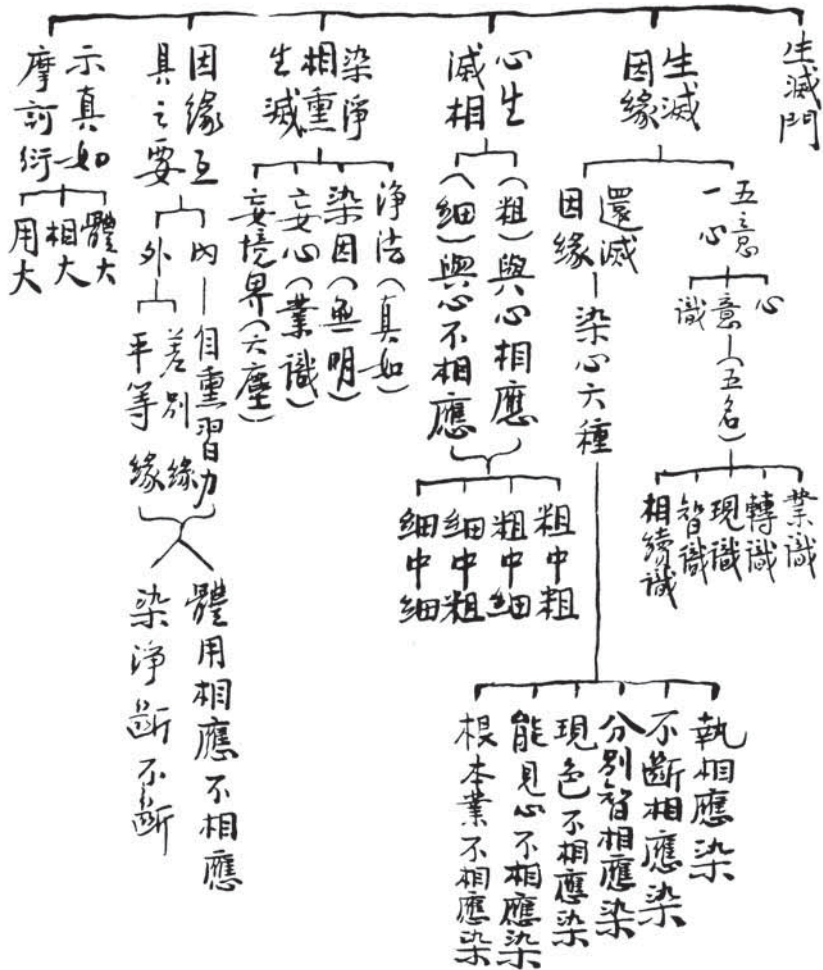 生滅門
生滅
因緣
五意
一心
心
意—(五名)
識
業識
轉識
現識
智識
相續識
還滅
因緣
染心六種
執相應染
不斷相應染
分別智相應染
現色不相應染
能見心不相應染
根本業不相應染
心生
滅相
(粗)與心相應
(細)與心不相應
粗中粗
粗中細
細中粗
細中細
染淨
相熏
生滅
淨法(真如)
染因(無明)
妄心(業識)
妄境界(六塵)
因緣互
具之要
內—自熏習力
外
差別緣
平等緣
體用相應不相應
染淨斷不斷
示真如
摩訶衍
體大
相大
用大